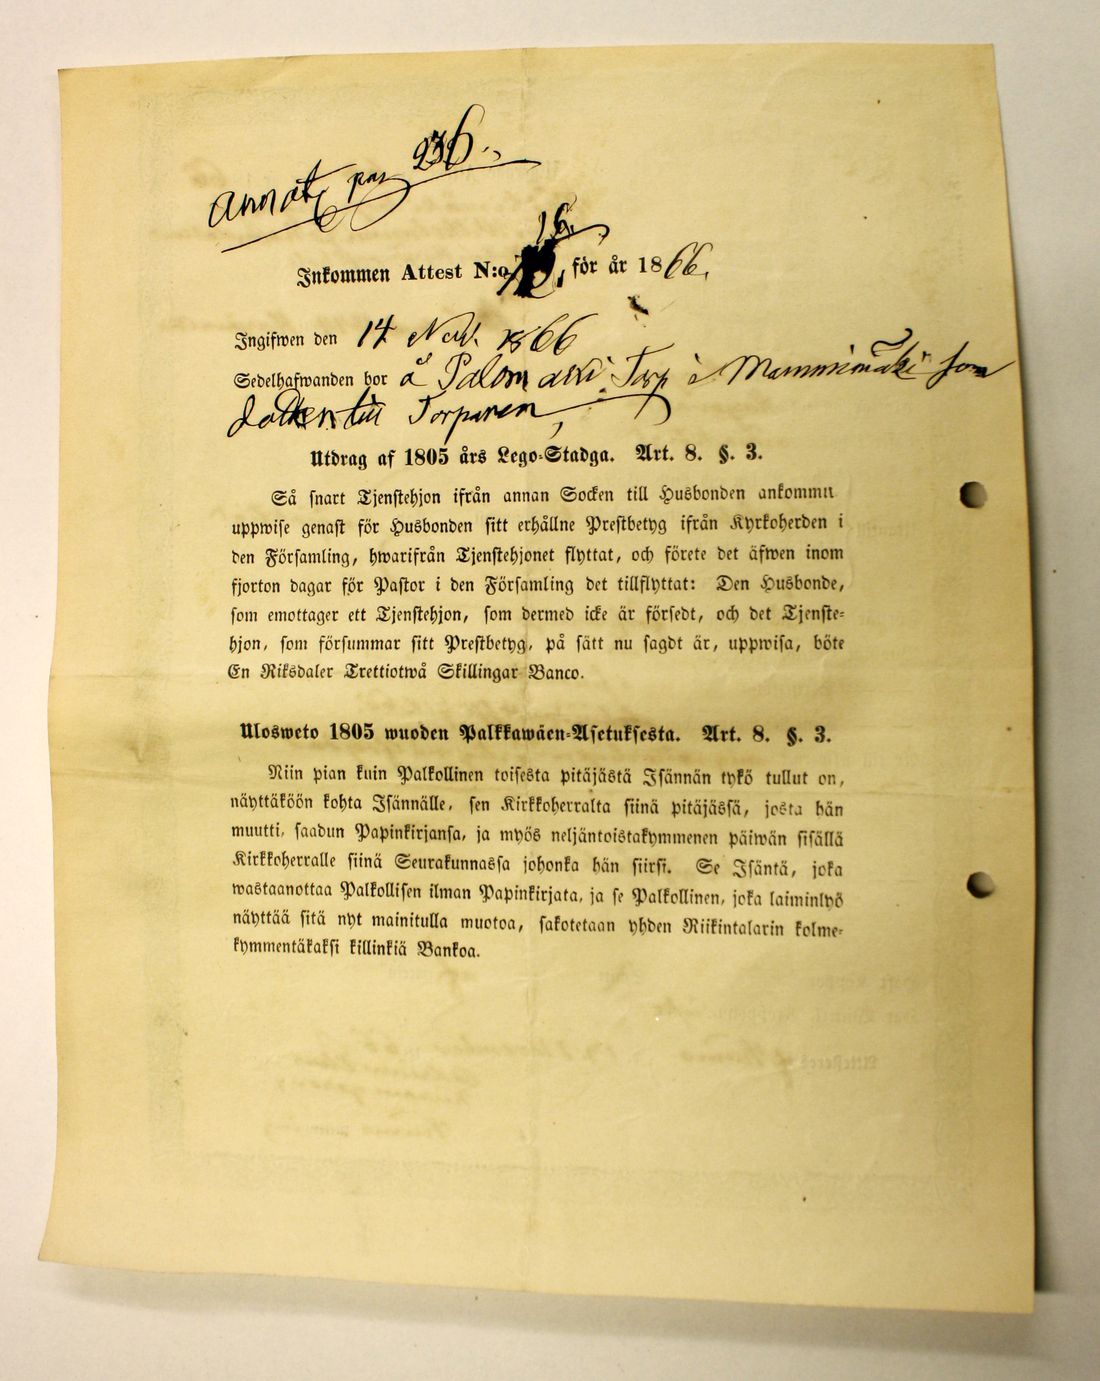 annot pag 236.
16.
Inkommen Attest N:o för år 1866.
Ingifwen den 14 Nov. 1866
Sedelhafwanden bor å Palomäki Torp i Mammimäki som
dotter till Torparen,
Utdrag af 1805 års Lego-Stadga. Art. 8. §. 3.
Så snart Tjenstehjon ifrån annan Socken till Husbonden ankommit
uppwise genast för Husbonden sitt erhållne Prestbetyg ifrån Kyrkoherden i
den Församling, hwarifrån Tjenstehjonet flyttat, och förete det äfwen inom
fjorton dagar för Pastor i den Församling det tillflyttat: Den Husbonde,
som emottager ett Tjenstehjon, som dermed icke är försedt, och det Tjenste-
hjon, som försummar sitt Prestbetyg, på sätt nu sagdt är, uppwisa, böte
En Riksdaler Trettiotwå Skillingar Banco.
Ulosweto 1805 wuoden Palkkawäen-Asetuksesta. Art. 8. §. 3.
Niin pian kuin Palkollinen toisesta pitäjästä Isännän tykö tullut on,
näyttäköön kohta Isännälle, sen Kirkkoherralta siinä pitäjässä, josta hän
muutti, saadun Papinkirjansa, ja myös neljäntoistakymmenen päiwän sisällä
Kirkkoherralle siinä Seurakunnassa johonka hän siirsi. Se Isäntä, joka
wastaanottaa Palkollisen ilman Papinkirjata, ja se Palkollinen, joka laiminlyö
näyttää sitä nyt mainitulla muotoa, sakotetaan yhden Riikintalarin kolme-
kymmentäkaksi killinkiä Bankoa.